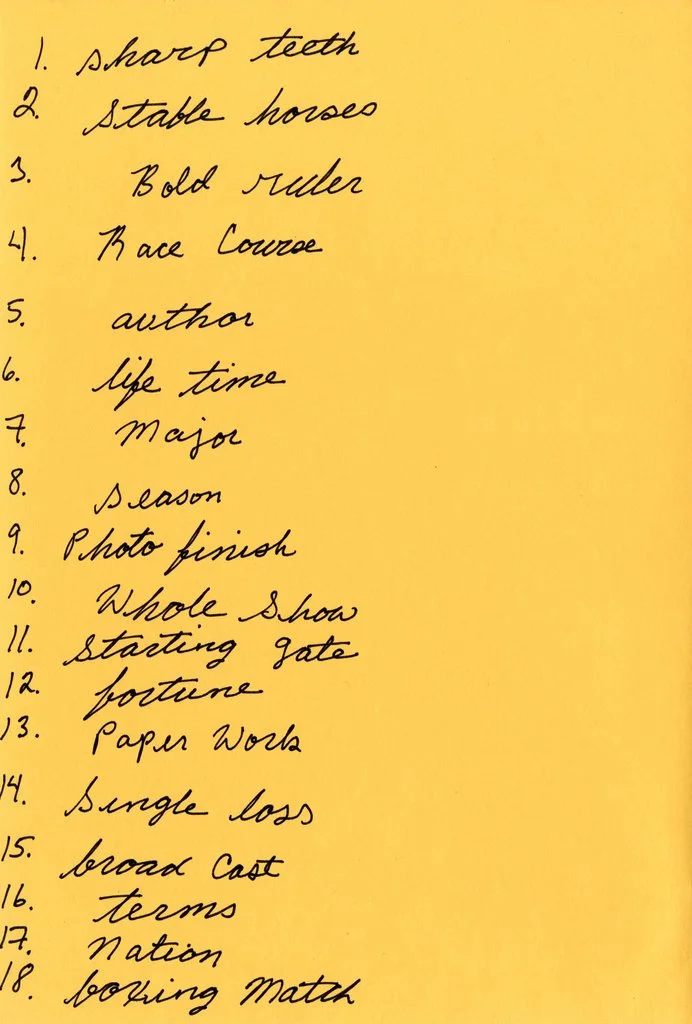 1. sharp teeth
2. Stable horses
3. Bold ruler
4. Race Course
5. author
6. life time
7. Major
8. season
9. Photo finish
10. Whole Show
11. Starting gate
12. fortune
13. Paper Work
14. Single loss
15. broad Cast
16. terms
17. Nation
18. boxing Match